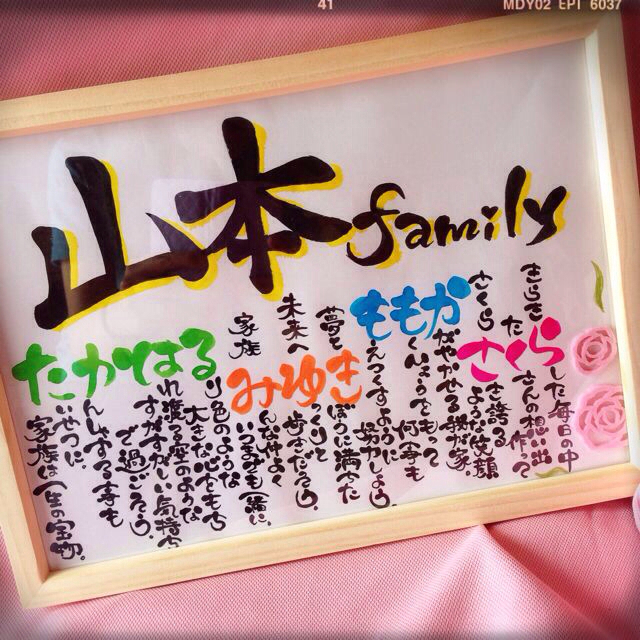 山本family
きらきらした毎日の中
たくさんの想い出作って
さくらさき誇るような笑顔
かがやかせる我が家。
もくひょうをもって何事も
もえつくすように協力しよう。
夢ときぼうに満ちた
未来へゆっくりと歩きだそう。
家族みんな仲よくいつまでも一緒に。
るり色のような大きな心をもち
はれ渡る空のようなすがすがしい気持ちで過ごそう。
かんしゃする事も
たいせつに。家族は一生の宝物。
41
MDY02 EPT 6037